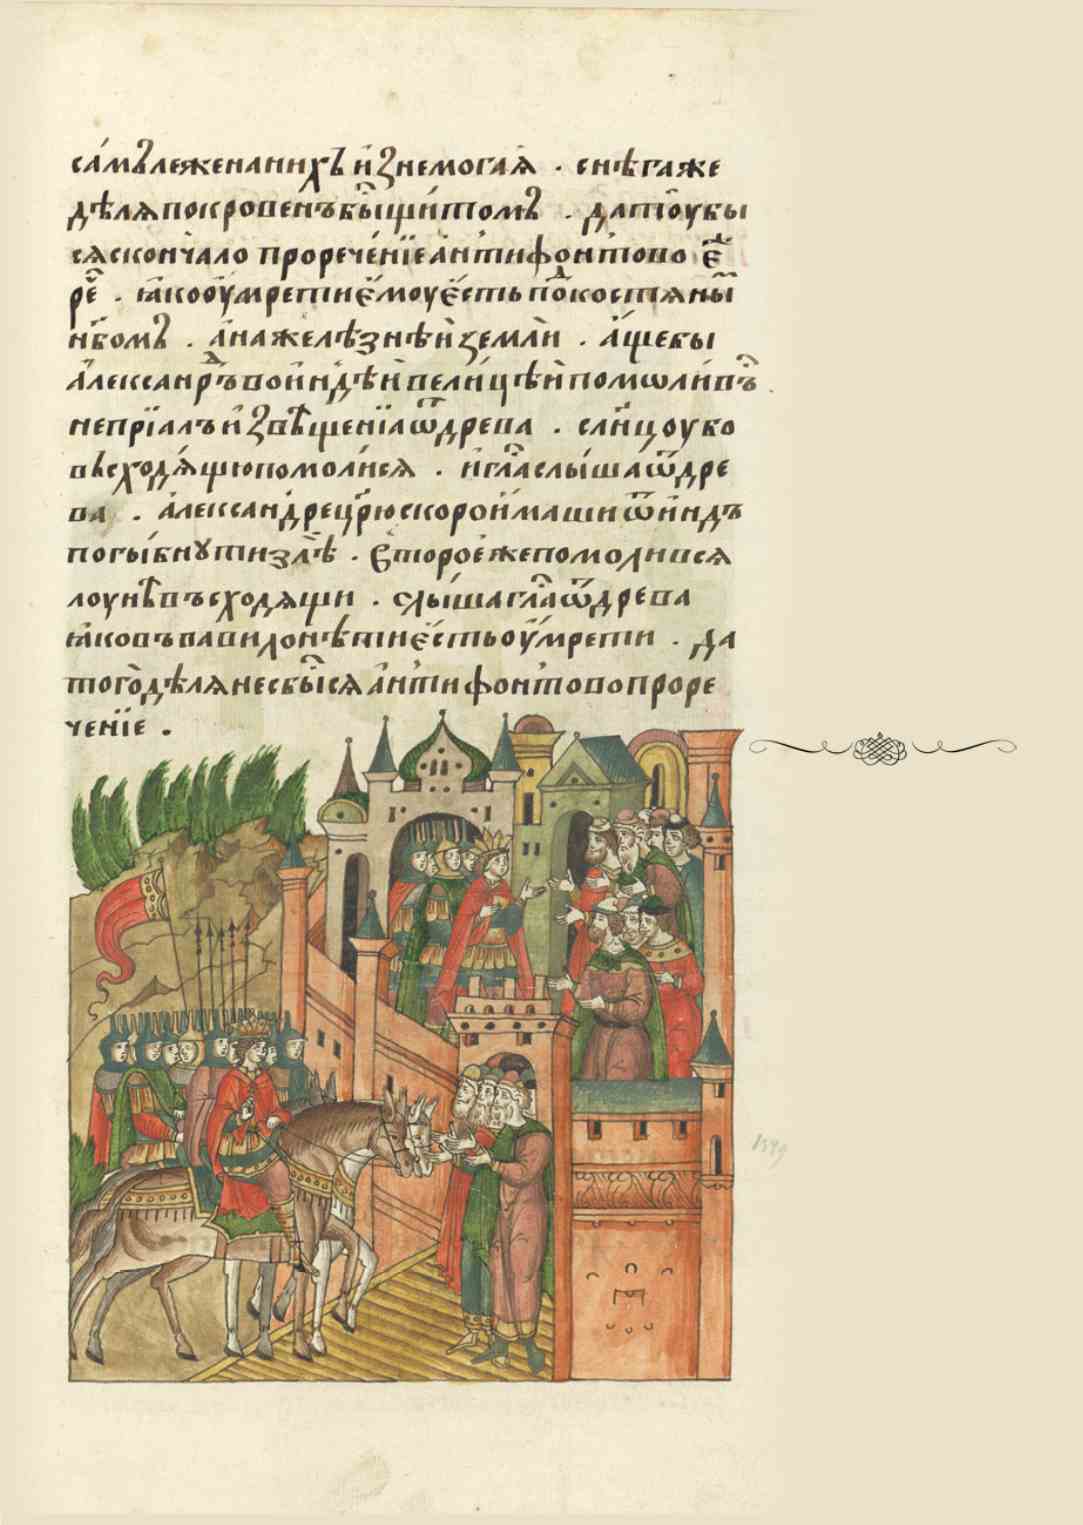 са́мъ леже на нихъ и҆знемога́ѧ . снѣга же
дѣлѧ покрове́нъ бы́ щито́мъ . да то̀ ѹбы
сѧ сконча́ло прорече́нїе а҆нтифонтово є҆
ре́ . ꙗ҆ко ѹ҆мрети є҆моу є҆сть по костѧны
нбомъ . а҆ на желѣзнѣи земли̇ . а҆ще бы
а҆лександръ во и҆ндѣи вели́цѣи помѡли́въ
не прїалъ и҆звѣщенїа ѿ древа . сл҃нцоу бо
въсходѧ́щю помоли́сѧ . и҆ гла слы́ша ѿ дре
ва . а҆лександре цр҃ю скоро и҆маши ѿ и҆ндъ
погы́бнꙋти злѣ . второе́ же помоли́всѧ
лоунѣ въсходѧщи . слы́ша гла ѿ древа
ꙗ҆ко въ вавилонѣ ти є҆сть ѹ҆мрети . да
того̀ дѣлѧ не сбы́сѧ а҆нтифонтово проре
че́нїе .
1549